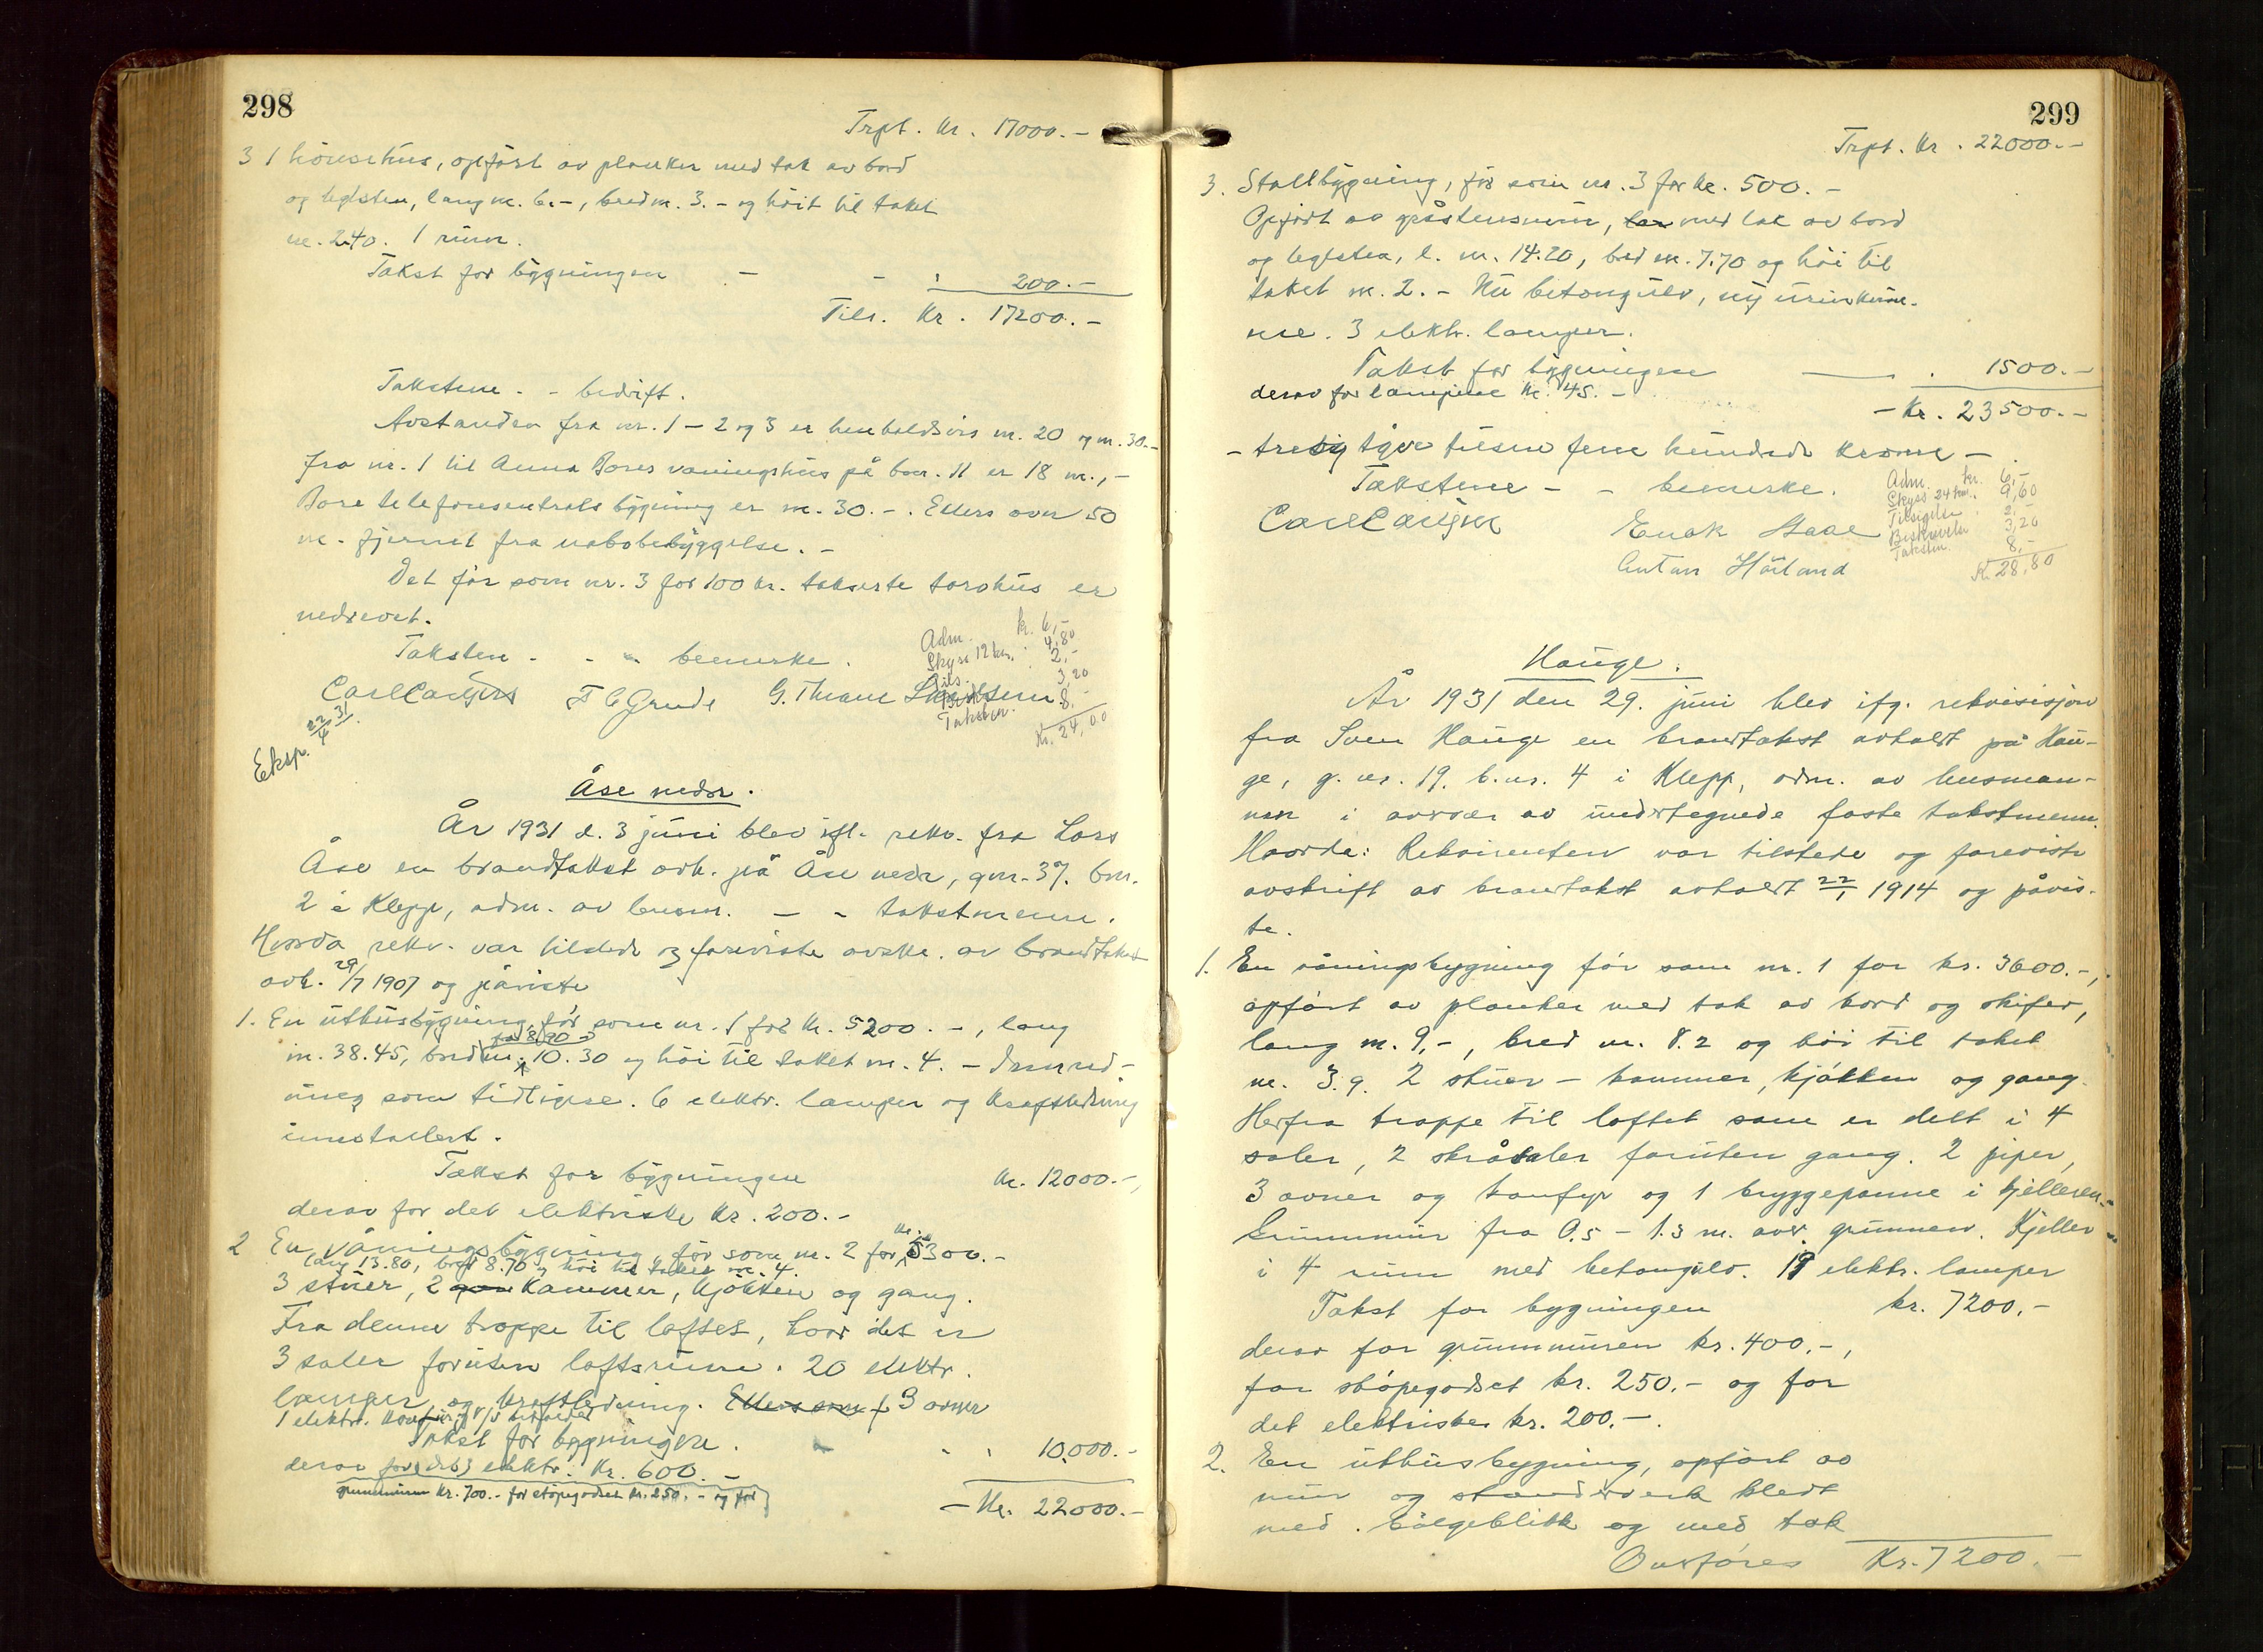 298
Trpt. kr. 17000.-
3 1 hönsehus, opfört av planker med tak av bord
og teglsten, lang m. 6.-, bred m. 3.- og höit til taket
m. 2.40. 1 rum.
Takst for bygningen - - " 200.-
Tils. Kr. 17200.-
Takstene - - bedrift.
Avstanden fra nr. 1 - 2 og 3 er henholdsvis m. 20 og m. 30.-
fra nr. 1 til Anna Bores våningshus på bnr. 11 er 18 m.,-
Bore telefonsentrals bygning er m. 30.-. Ellers over 50
m. fjernet fra nabobebyggelse.-
Det för som nr. 3 for 100 kr. takserte torvhus er
nedrevet.
Taksten - - - bemerke.
Adm. kr. 6,-
Skyss 12 km. " 4,80
Tils. 2,-
Beskr. 3,20
Taksten. 8,-
Kr. 24,00
T C Grude G. Thrane
Eksp. 22/4 31.
Åse nedr.
År 1931 d. 3 juni blev ifl. rekv. fra Lars
Åse en brandtakst avh. på Åse nedr, gnr. 37. bnr.
2 i Klepp, adm. av lensm. - - takstmenn.
Hvorda rekv. var tilstede og foreviste avskr. av brandtakst
avh. 29/7 1907 og påviste
1. En uthusbygning för som nr. 1 for kr. 5200.-, lang
m. 38.45, bred m. 10.30 og höi til taket m. 4. - Innred-
ning som tidligere. 6 elektr. lamper og kraftledning
innstallert.
Takst for bygningen kr. 12000.-,
derav for det elektriske kr. 200.-
2 En våningsbygning, för som nr. 2 for kr. 5300.-
lang 13.80, bred 8.70 og höi til taket m. 4.
3 stuer, 2 kammer, kjökken og gang.
Fra denne trappe til loftet, hvor det er
3 saler foruten loftsrum. 20 elektr.
lamper og kraftledning. Ellers som f 3 ovner
1 elektr. komfur
Takst for bygningen. - - " 10.000.-
derav for det elektr. kr. 600.-
grunnmuren kr. 700.- for stöpegodset kr. 250.- og for
- Kr. 22000.-
299
Trpt. kr. 22000.-
3. Stallbygning, för som nr. 3 for kr. 500.-
Opfört av gråstensmur, med tak av bord
og teglsten, l. m. 14.20, bred m. 7.70 og höi til
taket m. 2. - Nu betongulv, ny urinkum-
me. 3 elektr. lamper.
Takst for bygningen - " 1500.-
derav for lampene kr. 45.-
- Kr. 23500.-
- treogtyve tusen fem hundrede kroner -
Takstene - - bemerke.
Adm. kr. 6,-
Skyss 24 km. 9,60
Tilsigelse 2,-
Beskrivelse 3,20
Taksten. 8,-
Kr. 28,80
Enok Haae
Antan Höiland
Hauge.
År 1931 den 29. juni blev ifg. rekvisisjon
fra Sven Hauge en branntakst avholdt på Hau-
ge, g. nr. 19. b. nr. 4 i Klepp, adm. av lensman-
nen i overvær av undertegnede faste takstmenn.
Hvorda: Rekvirenten var tilstede og foreviste
avskrift av branntakst avholdt 22/1 1914 og påvis-
te.
1. En våningsbygning för som nr. 1 for kr. 3600.-,
opfört av planker med tak av bord og skifer,
lang m. 9,-, bred m. 8.2 og höi til taket
m. 3.9. 2 stuer - kammer, kjökken og gang.
Herfra trappe til loftet som er delt i 4
saler, 2 skråsaler foruten gang. 2 piper,
3 ovner og komfyr og 1 bryggepanne i kjelleren.-
Grunnmur fra 0.5 - 1.3 m. over grunnen. Kjeller
i 4 rum med betongulv. 19 elektr. lamper
Takst for bygningen kr. 7200.-
derav for grunnmuren kr. 400.-,
for stöpegodset kr. 250.- og for
det elektriske kr. 200.-.
2. En uthusbygning, opfört av
mur og standerverk kledt
med bölgeblikk og med tak
Overföres Kr. 7200.-